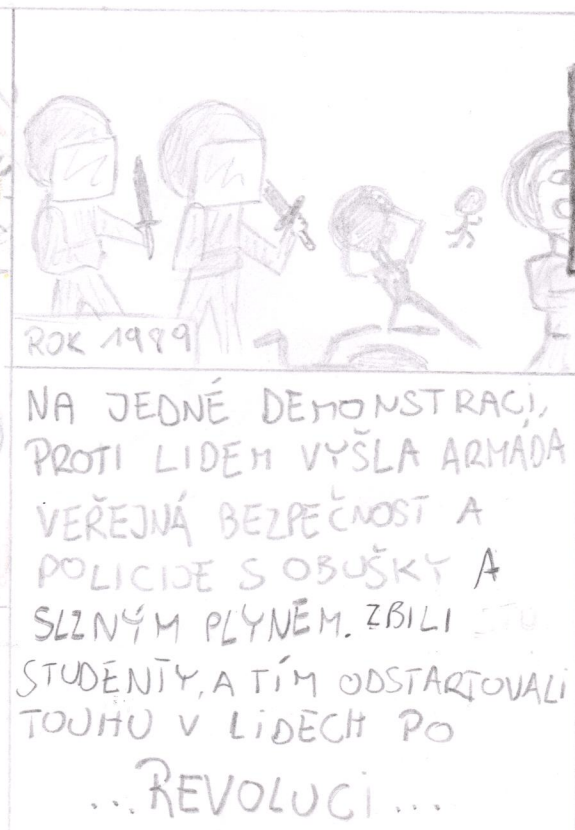 ROK 1989
NA JEDNÉ DEMONSTRACI,
PROTI LIDEM VYŠLA ARMÁDA
VEŘEJNÁ BEZPEČNOST A
POLICIJE S OBUŠKY A
SLZNÝM PLYNEM. ZBILI
STUDENTY, A TÍM ODSTARTOVALI
TOUHU V LIDECH PO
...REVOLUCI...